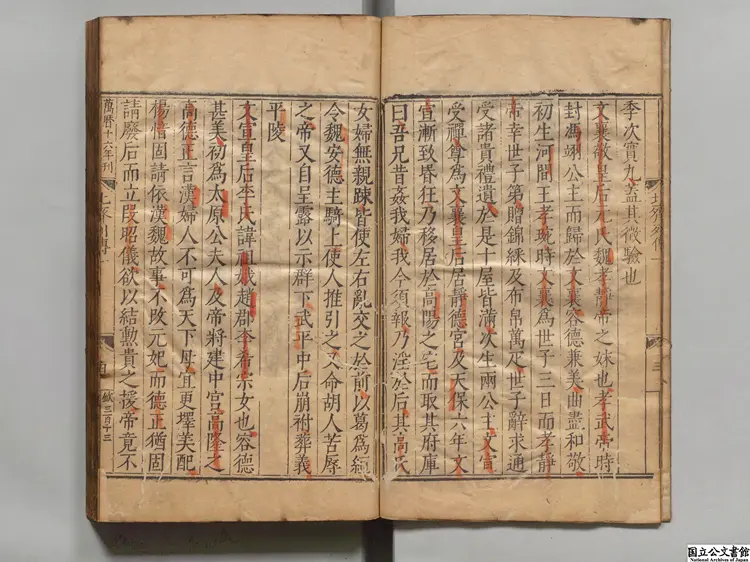 北齊列傳一
三
季次實九蓋其徵驗也
文襄敬皇后元氏魏孝靜帝之妹也孝武帝時
封馮翊公主而歸於文襄容德兼美曲盡和敬
初生河間王孝琬時文襄爲世子三日而孝靜
帝幸世子第贈錦綵及布帛萬疋世子辭求通
受諸貴禮遺於是十屋皆滿次生兩公主文宣
受禪尊爲文襄皇后居靜德宮及天保六年文
宣漸致昏狂乃移居於高陽之宅而取其府庫
曰吾兄昔姦我婦我今須報乃淫於后其高氏
女婦無親踈皆使左右亂交之於前以葛爲絙
令魏安德主騎上使人推引之又命胡人苦辱
之帝又自呈露以示群下武平中后崩祔葬義
平陵
文宣皇后李氏諱祖娥趙郡李希宗女也容德
甚美初爲太原公夫人及帝將建中宮高隆之
高德正言漢婦人不可爲天下母宜更擇美配
楊愔固請依漢魏故事不改元妃而德正猶固
請廢后而立段昭儀欲以結勳貴之援帝竟不
萬曆十六年刊
列傳一
三百十三
国立公文書館
National Archives of Japan